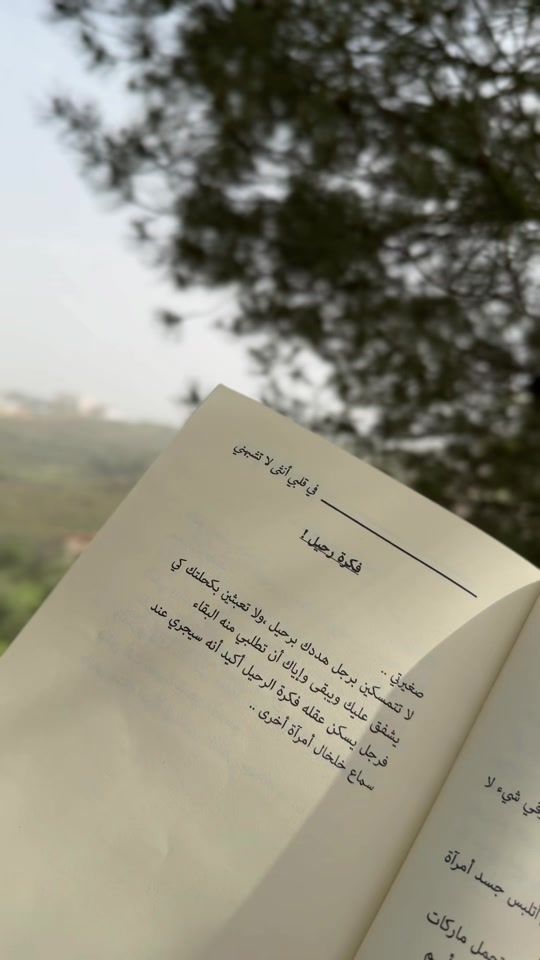 في قلبي أنثى لا تشبهني
فكرة رحيل !
صغيرتي ..
لا تتمسكين برجل هددك برحيل ,ولا تعبثين بكحلتك كي
يشفق عليك ويبقى وإياك أن تطلبي منه البقاء
فرجل يسكن عقله فكرة الرحيل أكيد أنه سيجري عند
سماع خلخال أمرآة أخرى ..
في شيء لا
أتلبس جسد أمرآة
تحمل ماركات